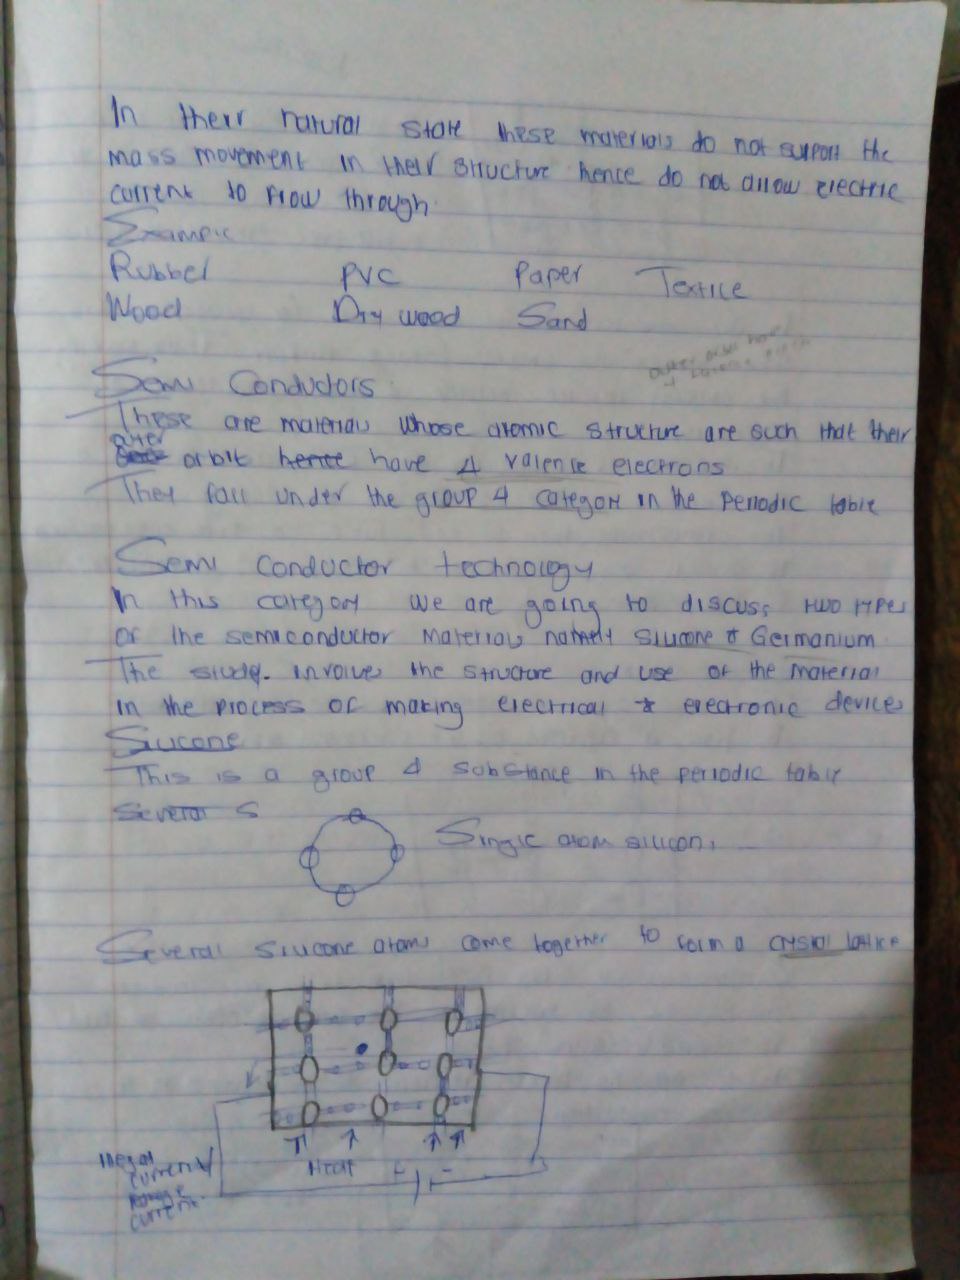 In their natural state these materials do not support the
mass movement in their structure hence do not allow electric
current to flow through.
Example
Rubbel PVC Paper Textile
Wood Dry wood Sand
Semi Conductors
These are materials whose atomic structure are such that their
outer
orbit hence have 4 valence electrons
They fall under the group 4 category in the periodic table
Semi conductor technology
In this category we are going to discuss two types
of the semiconductor materials namely silicone & Germanium
The study involves the structure and use of the material
in the process of making electrical & electronic devices
Silicone
This is a group 4 substance in the periodic table
Several S
Single atom silicon.
Several silicone atoms come together to form a crystal lattice
Heat
+ -
Illegal
current/
current